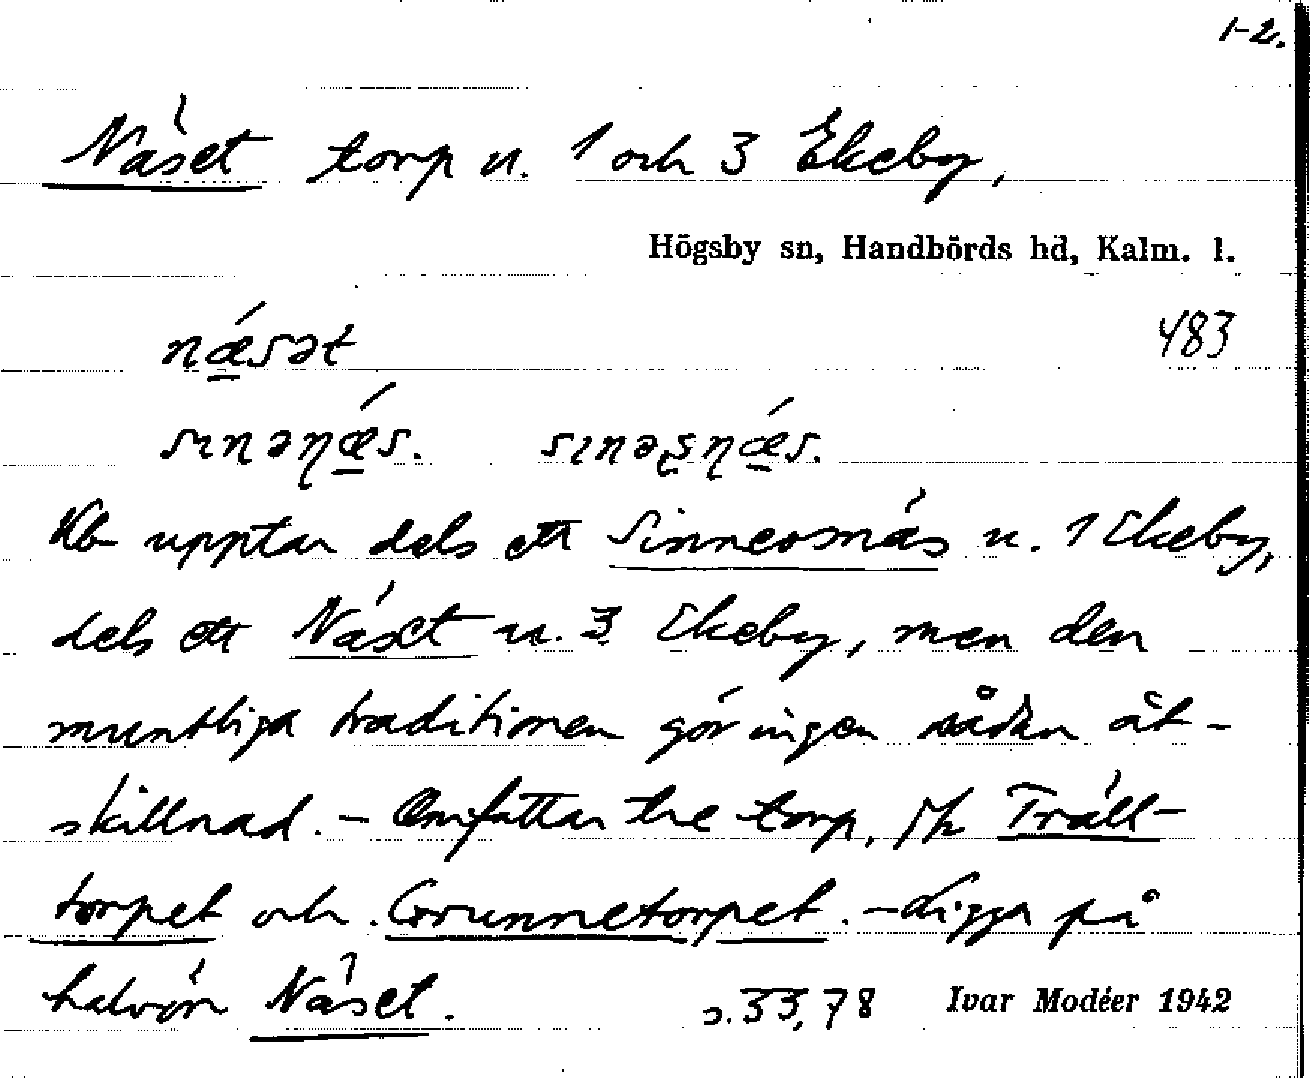 1-2.
Näset torp u. 1 och 3 Ekeby,
Högsby sn, Handbörds hd, Kalm. l.
nǽ̲sət 483
sɪnəɳǽ̲s. sɪnəʂɳǽ̲s.
Kb upptar dels ett Sinnersnäs u. 1 Ekeby,
dels ett Näset u. 3 Ekeby, men den
muntliga traditionen gör ingen sådan åt-
skillnad. – Omfattar tre torp, jfr Träll-
torpet och Grunnetorpet. – Ligga på
halvön Näset. s. 33, 78 Ivar Modéer 1942